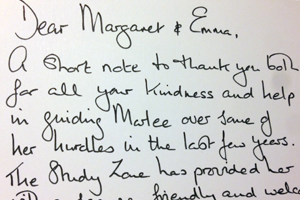 Dear Margaret & Emma,
A short note to thank you both
for all your kindness and help
in guiding Marlee over some of
her hurdles in the last few years.
The Study Zone has provided her
friendly and